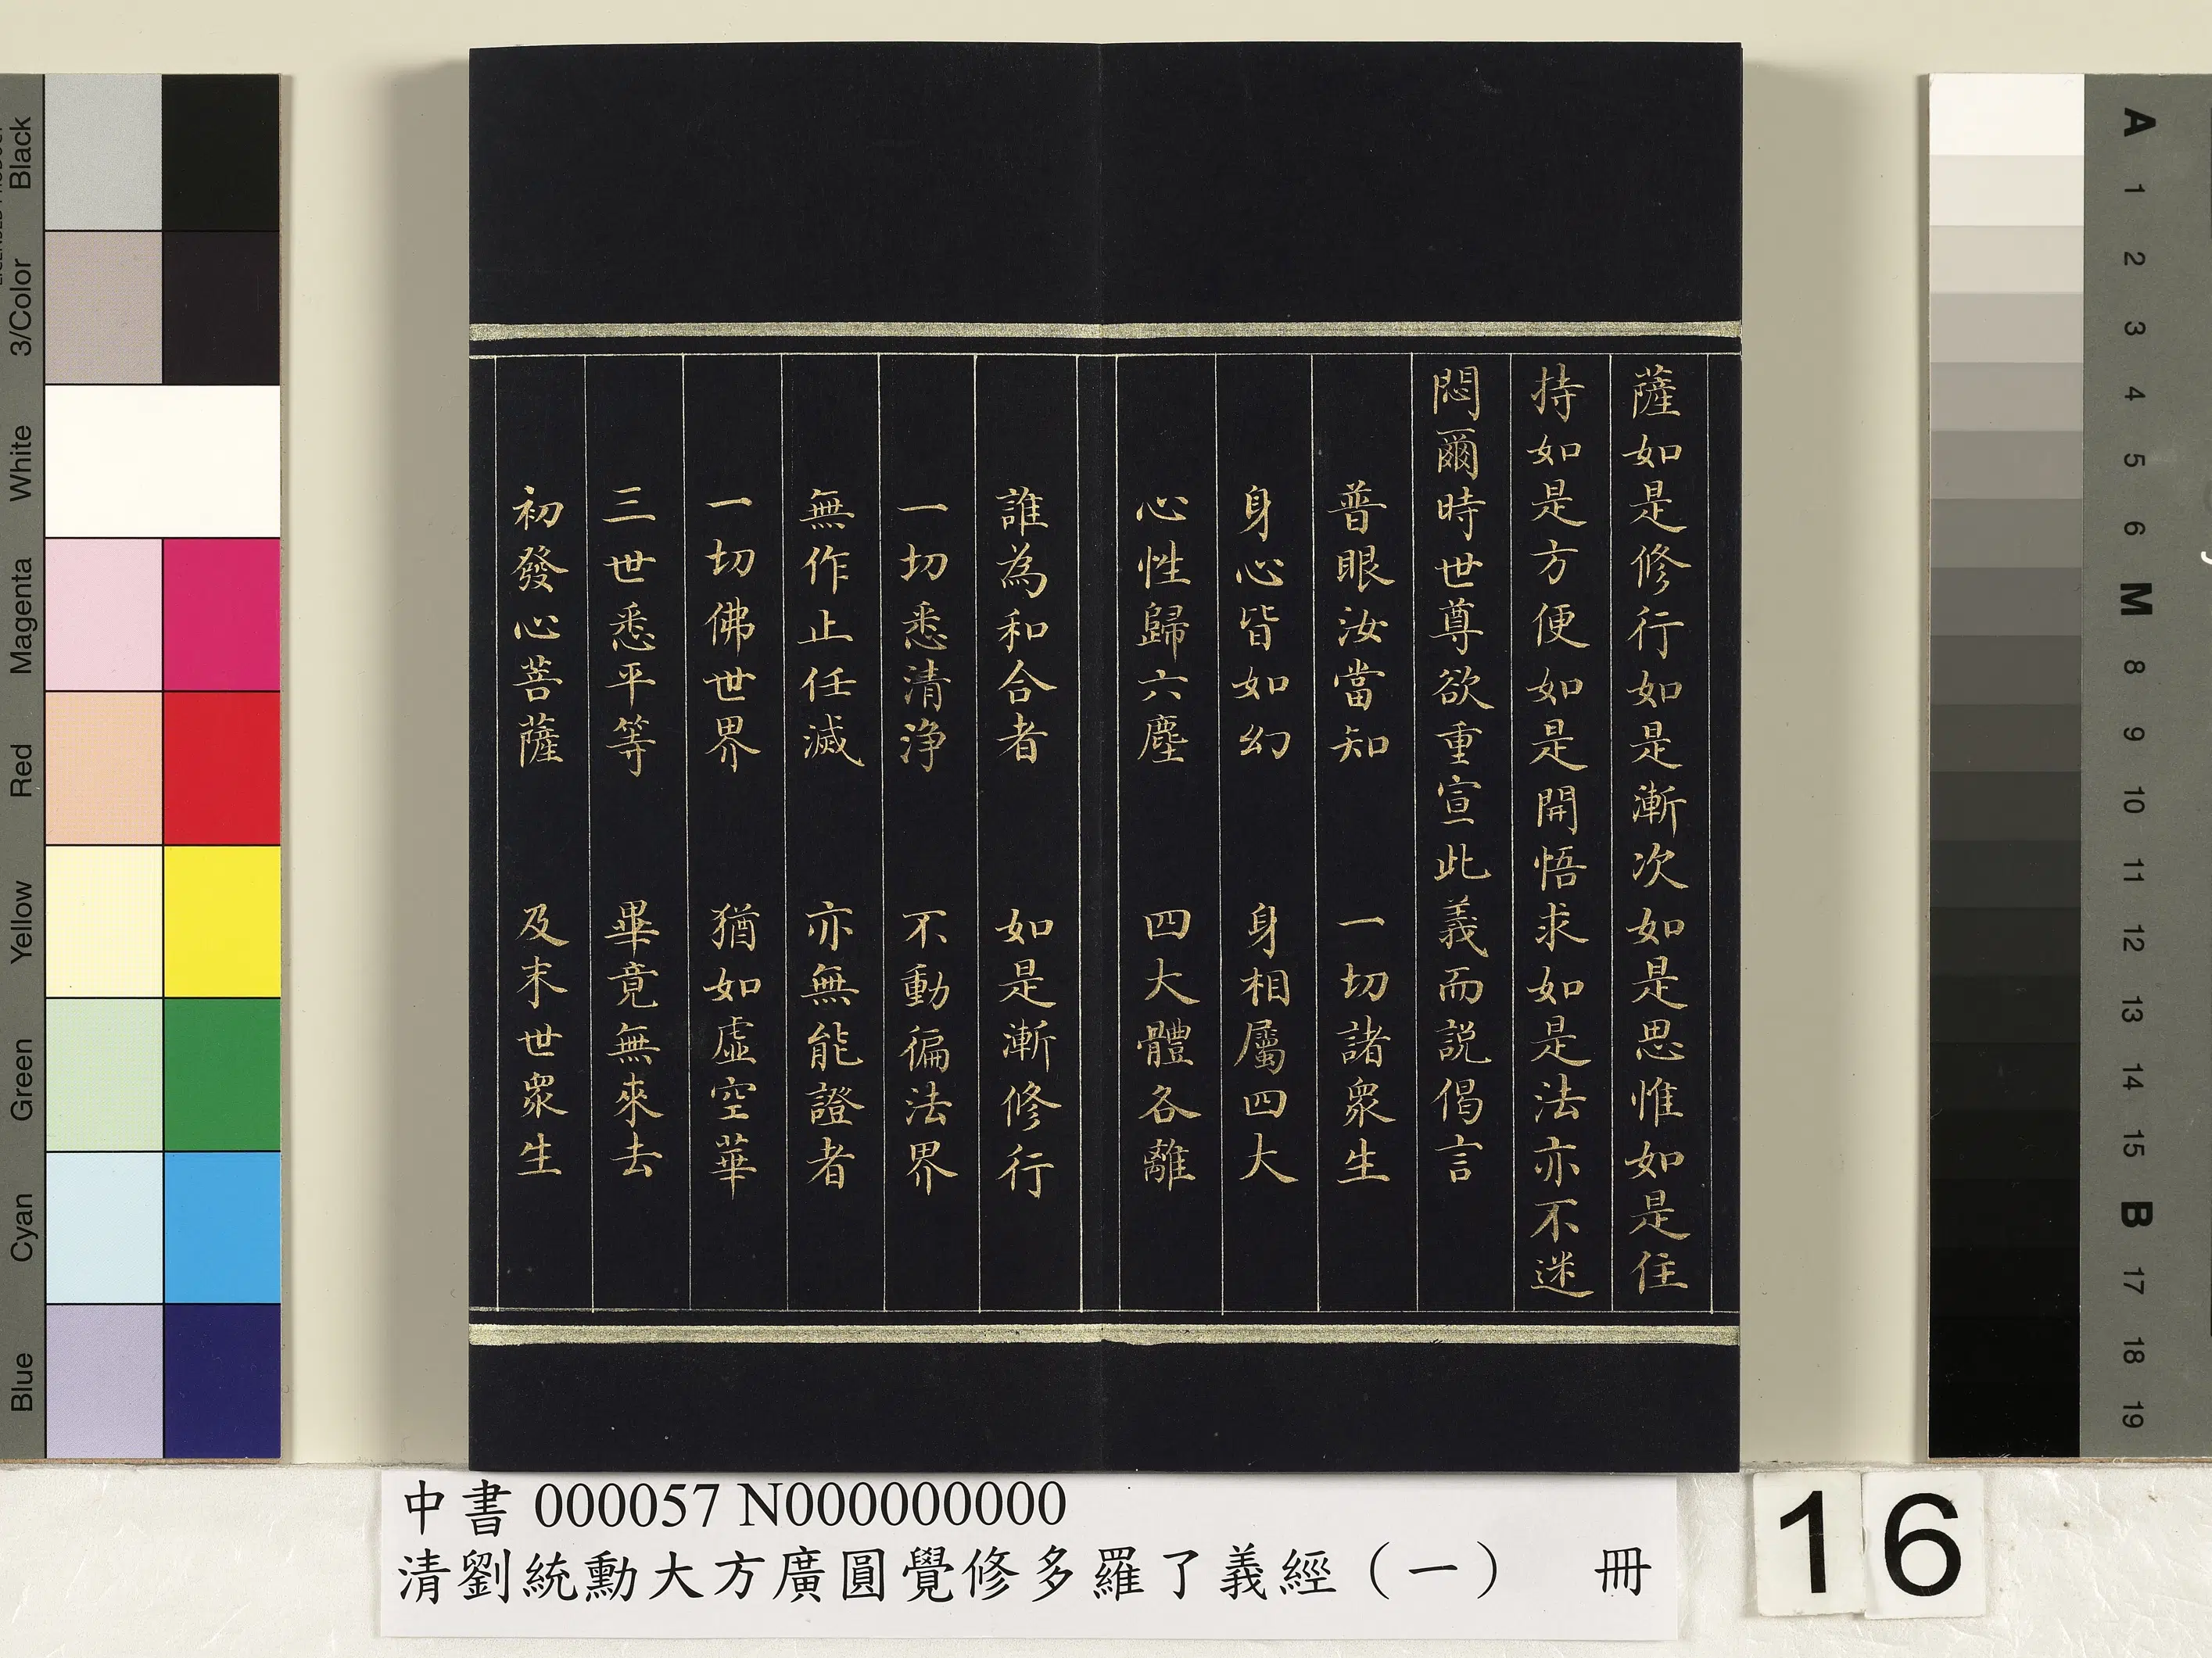 薩如是修行如是漸次如是思惟如是住
持如是方便如是開悟求如是法亦不迷
悶爾時世尊欲重宣此義而說偈言
普眼汝當知 一切諸衆生
身心皆如幻 身相屬四大
心性歸六塵 四大體各離
誰為和合者 如是漸修行
一切悉清淨 不動徧法界
無作止任滅 亦無能證者
一切佛世界 猶如虛空華
三世悉平等 畢竟無來去
初發心菩薩 及末世衆生
中書 000057 N000000000
清劉統勳大方廣圓覺修多羅了義經（一） 冊
16
Black
3/Color
White
Magenta
Red
Yellow
Green
Cyan
Blue
A
1
2
3
4
5
6
M
8
9
10
11
12
13
14
15
B
17
18
19